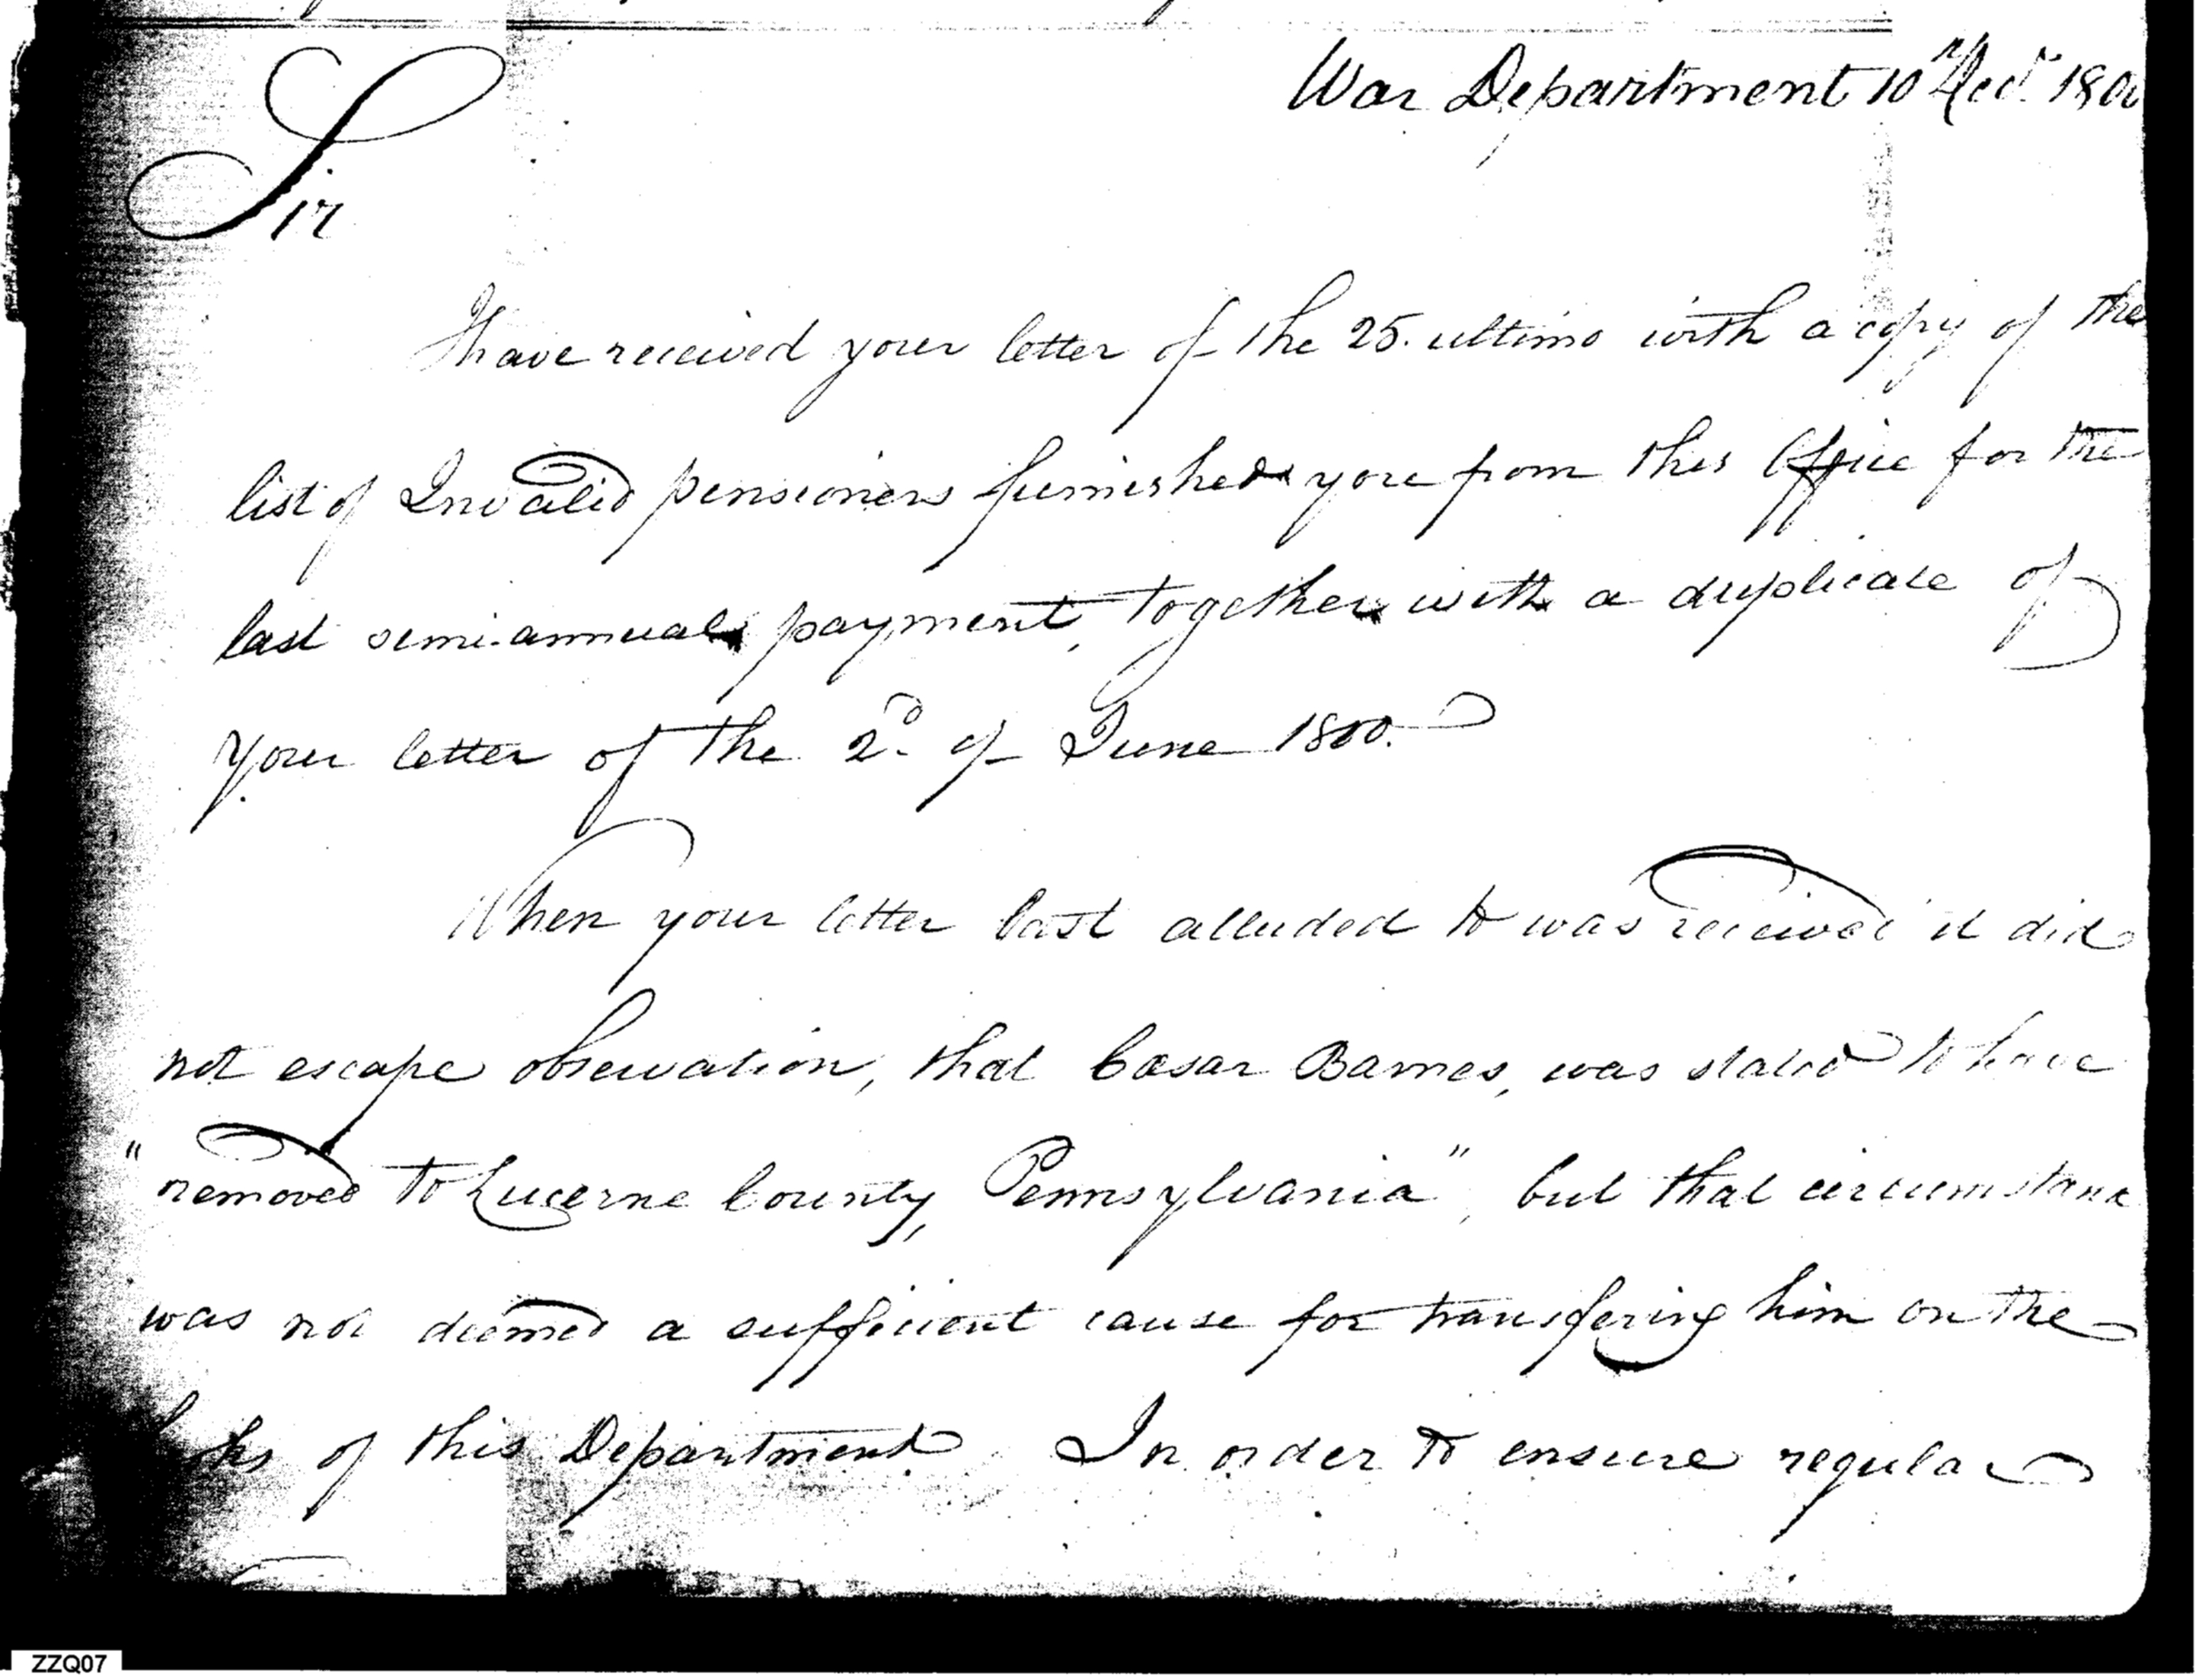 War Department 10th Decr. 180
Sir
I have received your letter of the 25. ultimo with a copy of the
list of Invalid pensioners furnished you from this Office for the
last semi-annual payment, together with a duplicate of
your letter of the 2d. of June 1800.
When your letter last alluded to was received it did
not escape observation, that Cæsar Barnes, was stated to have
"removed to Lucerne County, Pennsylvania", but that circumstance
was not deemed a sufficient cause for transfering him on the
books of this Department. In order to ensure regular
ZZQ07